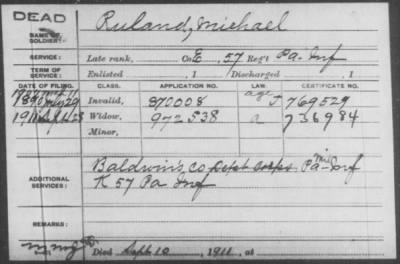 DEAD
NAME OF SOLDIER: Ruland, Michael
SERVICE: Late rank, Co. E, 57 Reg't Pa. Inf
TERM OF SERVICE: Enlisted , 1 Discharged , 1
DATE OF FILING. CLASS. APPLICATION NO. LAW. CERTIFICATE NO.
age
1890 July 29 Invalid, 870008 J 769529
1911 Sept 28 Widow, 972538 a 736984
Minor,
ADDITIONAL SERVICES: Baldwin's Co Dept Corps Pa Mil Inf
K 57 Pa Inf
REMARKS:
Died Sept 10, 1911, at